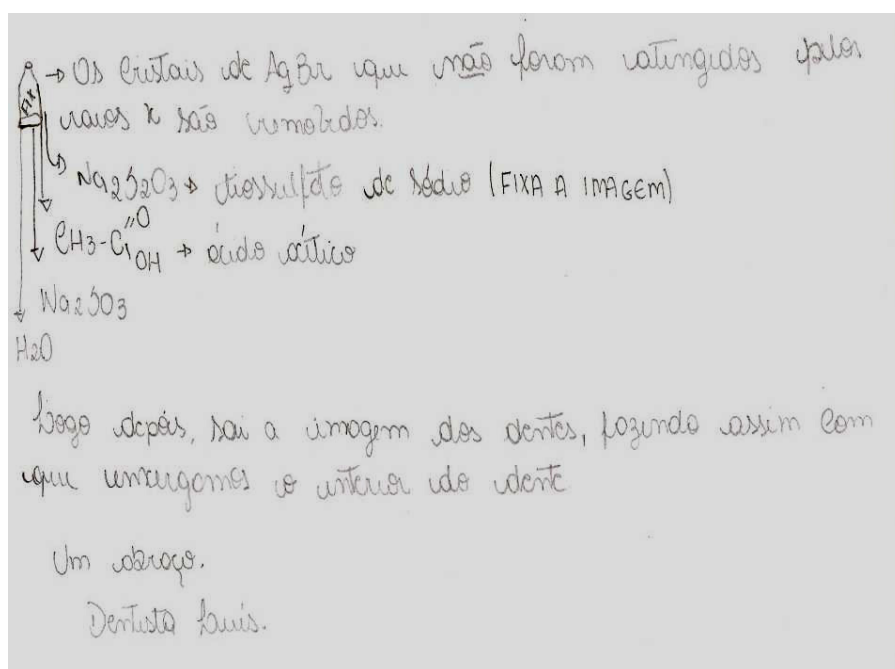 FIX → Os Cristais de AgBr que não foram atingidos pelos
raios x são removidos.
Na2S2O3 → tiossulfato de sódio (FIXA A IMAGEM)
CH3-C//O OH → ácido acético
Na2SO3
H2O
Logo depois, sai a imagem dos dentes, fazendo assim com
que enxergamos o interior do dente
Um abraço.
Dentista Luis.